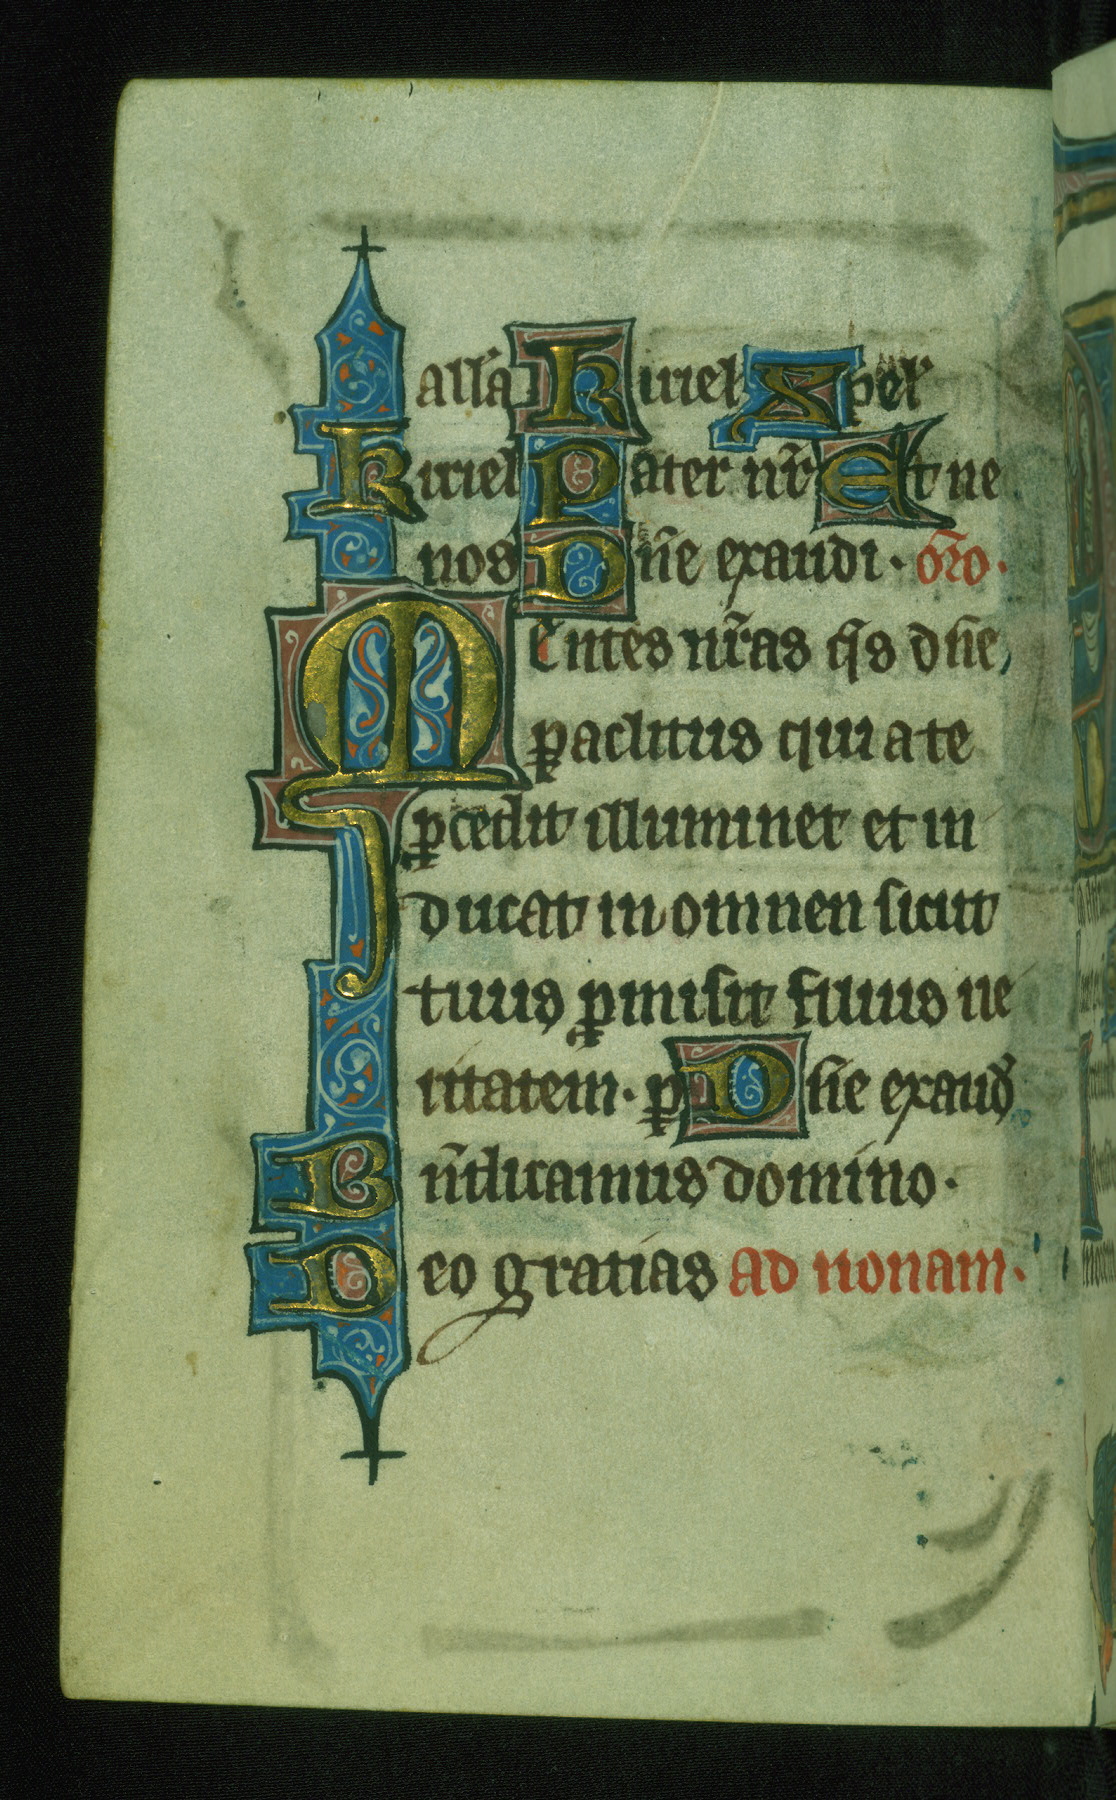 alla᷑ Kiriel Xpel᷑
Kiriel Pater nr̄ Et ne
nos Dn̄e exaudi · or̄o ·
Mentes nr̄as q̄s dn̄e
ꝑaclitus qui a te
ꝓcedit illuminet et in
ducat in omnen sicut
tuus ꝓmisit filius ue
ritatem · ꝑ Dn̄e exaud᷑
Bn̄dicamus domino ·
Deo gratias ad nonam ·